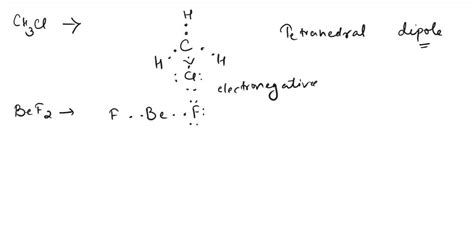 CH₃Cl → H
C Tetrahedral dipole
H H
:Cl: electronegative
BeF₂ → F ·· Be ·· F: